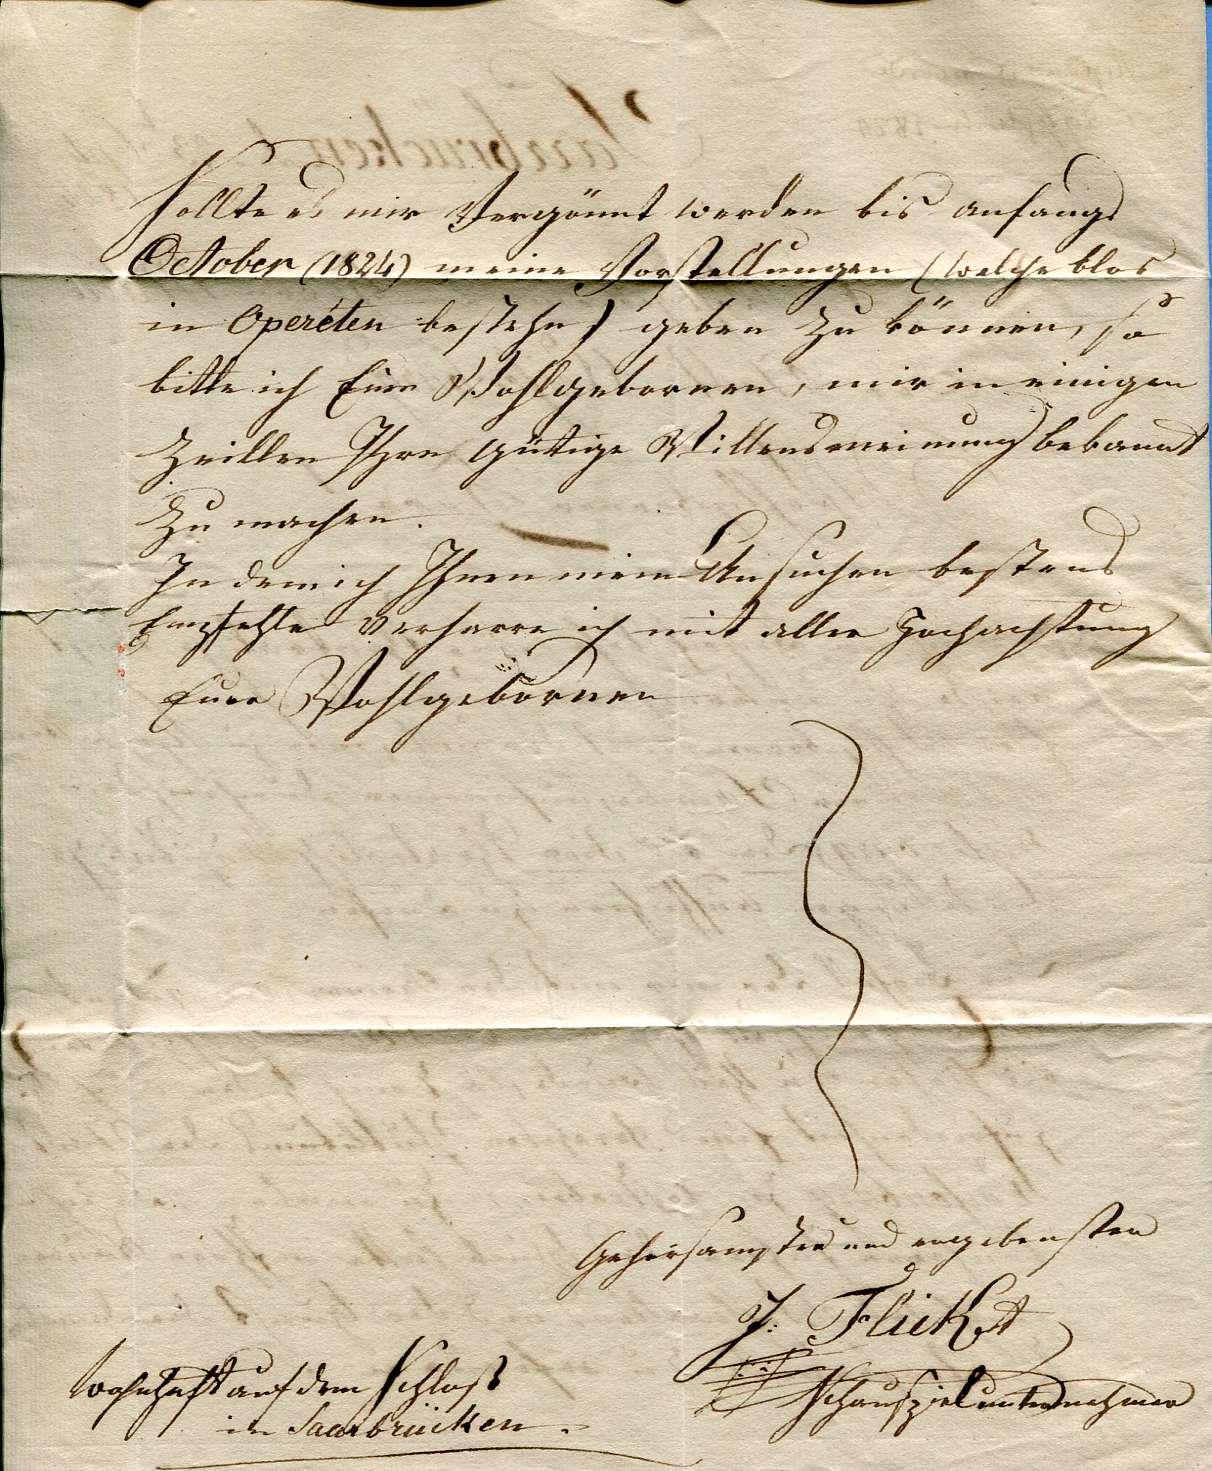 Sollte es mir Vergönnt werden bis anfangs
October (1824) meine Vorstellungen (welche blos
in Operéten bestehn) geben zu können, so
bitte ich Euer Wohlgebornen, mir in einigen
Zeillen Ihre gütige Willensmeinung bekannt
zu machen.
In dem ich Ihnen mein Ansuchen bestens
Empfehle verharre ich mit aller Hochachtung
Euer Wohlgebornen
Gehorsamster und ergebensten
J:
Schauspielunternehmer
wohnhaft auf dem Schloß
in Saarbrücken.